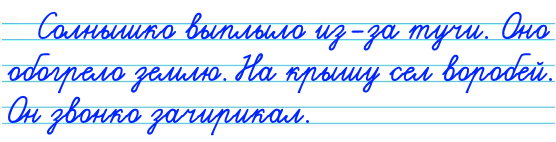 Солнышко выплыло из-за тучи. Оно
обогрело землю. На крышу сел воробей.
Он звонко зачирикал.